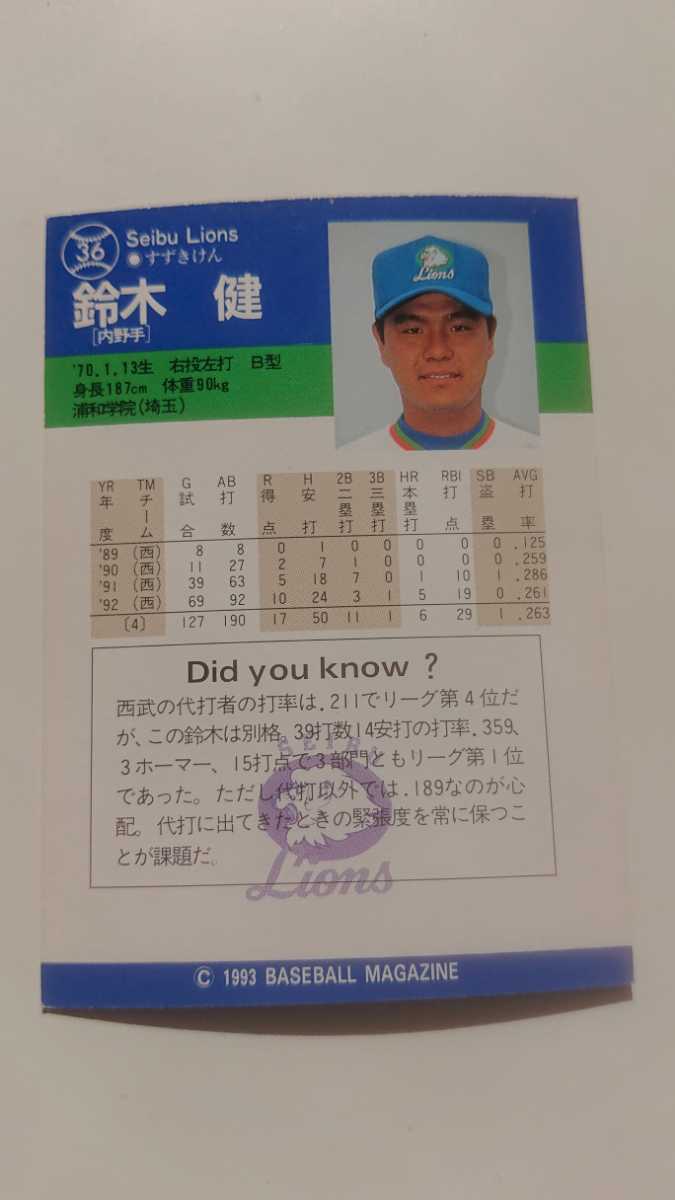 36
Seibu Lions
●すずきけん
鈴木 健
[内野手]
Lions
'70.1.13生 右投左打 B型
身長187cm 体重90kg
浦和学院(埼玉)
YR TM G AB R H 2B 3B HR RBI SB AVG
年度 チーム 試合 打数 得点 安打 二塁打 三塁打 本塁打 打点 盗塁 打率
'89 (西) 8 8 0 1 0 0 0 0 0 .125
'90 (西) 11 27 2 7 1 0 0 0 0 .259
'91 (西) 39 63 5 18 7 0 1 10 1 .286
'92 (西) 69 92 10 24 3 1 5 19 0 .261
〔4〕 127 190 17 50 11 1 6 29 1 .263
Did you know ?
西武の代打者の打率は.211でリーグ第4位だ
が、この鈴木は別格。39打数14安打の打率.359、
3ホーマー、15打点で3部門ともリーグ第1位
であった。ただし代打以外では.189なのが心
配。代打に出てきたときの緊張度を常に保つこ
とが課題だ。
SEIBU
Lions
© 1993 BASEBALL MAGAZINE